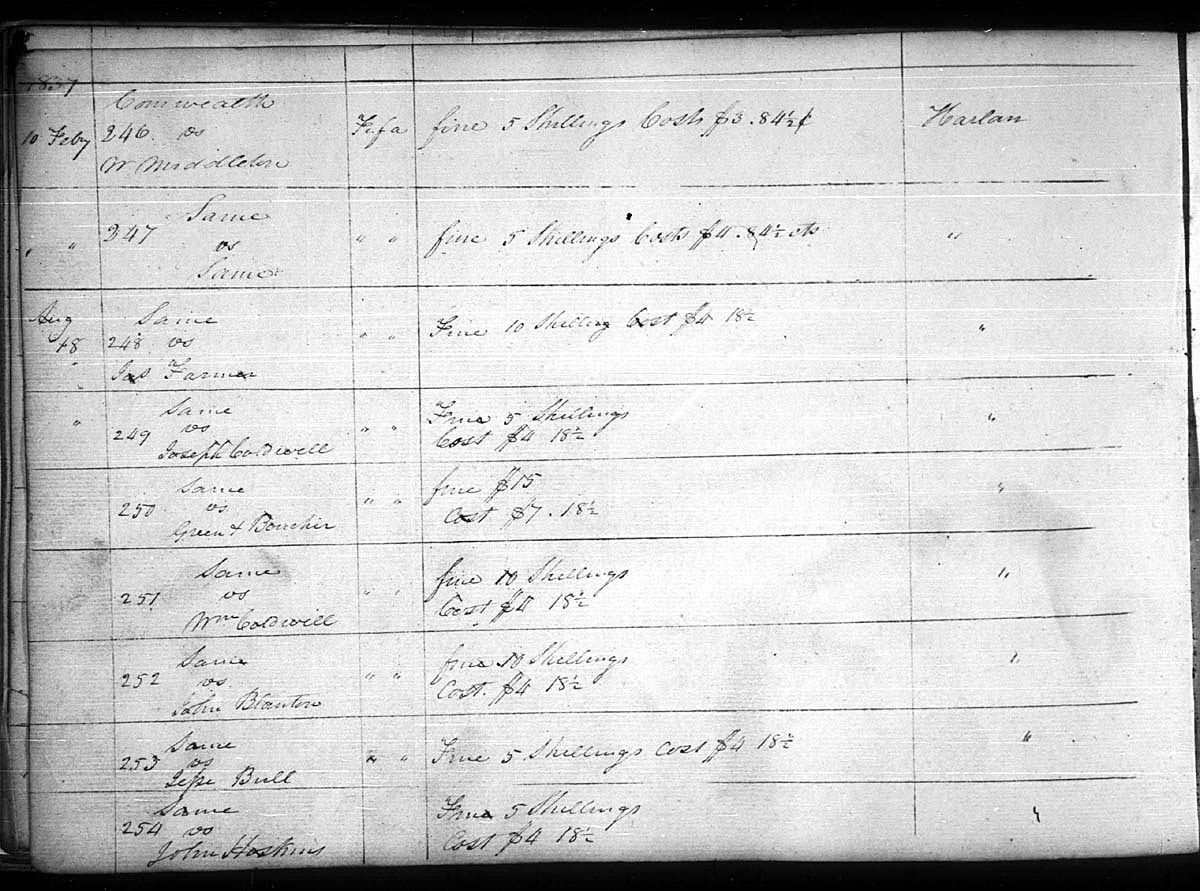 1837
Comwealth
10 Feby 246 vs Fifa fine 5 Shillings Costs $3.84½ ¢ Harlan
W Middleton
Same
" " 247 vs " " fine 5 Shillings Costs $4.84½ cts "
Same
Aug Same
18 248 vs " " Fine 10 Shilling Cost $4 18½ "
" Jas Farmer
" Same Fine 5 Shillings "
249 vs " " Cost $4 18½
Joseph Coldwell
Same fine $15 "
250 vs " " Cost $7. 18½
Green & Boucher
Same fine 10 Shillings "
251 vs " " Cost $4 18½
Wm Coldwill
Same fine 10 Shillings "
252 vs " " Cost. $4 18½
John Blanton
Same "
253 vs " " Fine 5 Shillings Cost $4 18½
Jesse Bull
Same Fine 5 Shillings "
254 vs Cost $4 18½
John Hoskins